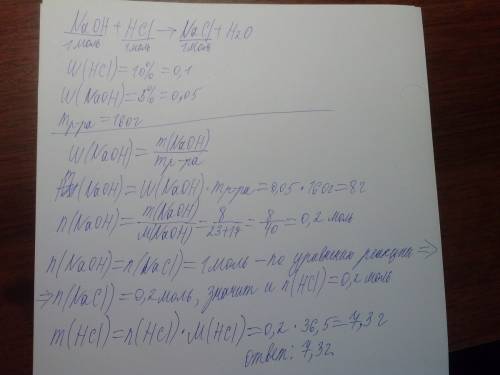 NaOH + HCl → NaCl + H2O
1 моль 1 моль 1 моль
W(HCl) = 10% = 0,1
W(NaOH) = 5% = 0,05
mр-ра = 160г
W(NaOH) = m(NaOH) / mр-ра
(NaOH) = W(NaOH) · mр-ра = 0,05 · 160г = 8г
n(NaOH) = m(NaOH) / M(NaOH) = 8 / 23+17 = 8 / 40 = 0,2 моль
n(NaOH) = n(NaCl) = 1 моль – по уравнению реакции ⇒
⇒ n(NaCl) = 0,2 моль, значит и n(HCl) = 0,2 моль
m(HCl) = n(HCl) · M(HCl) = 0,2 · 36,5 = 7,3 г
ответ: 7,3г.